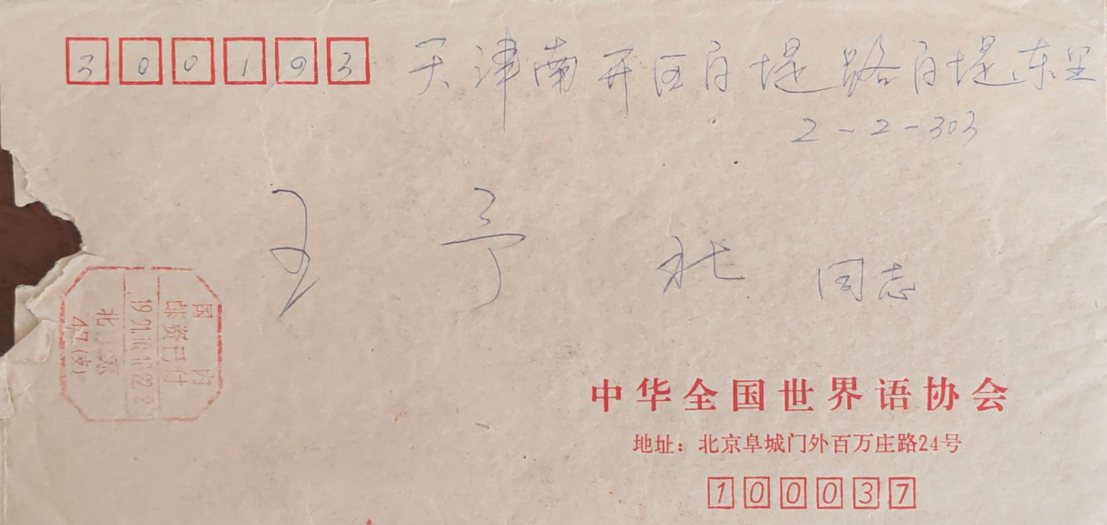 300193 天津南开区白堤路白堤东里
2-2-303
王予 同志
国内
邮资已付
北京
47(支)
中华全国世界语协会
地址：北京阜城门外百万庄路24号
100037